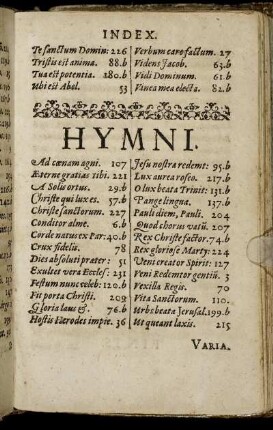 INDEX.
Te sanctum Domin: 226
Tristis est anima. 88.b
Tua est potentia. 280.b
Ubi est Abel. 53
Verbum caro factum. 27
Videns Jacob. 63.b
Vidi Dominum. 61.b
Vinea mea electa. 82.b
HYMNI.
Ad cœnam agni. 107
Æterne gratias tibi. 221
A Solis ortus. 29.b
Christe qui lux es. 57.b
Christe sanctorum. 227
Conditor alme. 6.b
Corde natus ex Par: 40.b
Crux fidelis. 78
Dies absoluti præter: 51
Exultet vera Eccles: 231
Festum nunc celeb: 120.b
Fit porta Christi. 209
Gloria laus &. 76.b
Hostis Herodes impie. 36
Jesu nostra redemt: 95.b
Lux aurea rosea. 217.b
O lux beata Trinit: 131.b
Pange lingua. 137.b
Pauli diem, Pauli. 204
Quod chorus vatũ. 207
Rex Christe factor. 74.b
Rex gloriose Marty: 224
Veni creator Spirit: 127
Veni Redemtor gentiũ. 3
Vexilla Regis. 70
Vita Sanctorum. 110.
Urbs beata Jerusal. 199.b
Ut queant laxis. 215
VARIA.